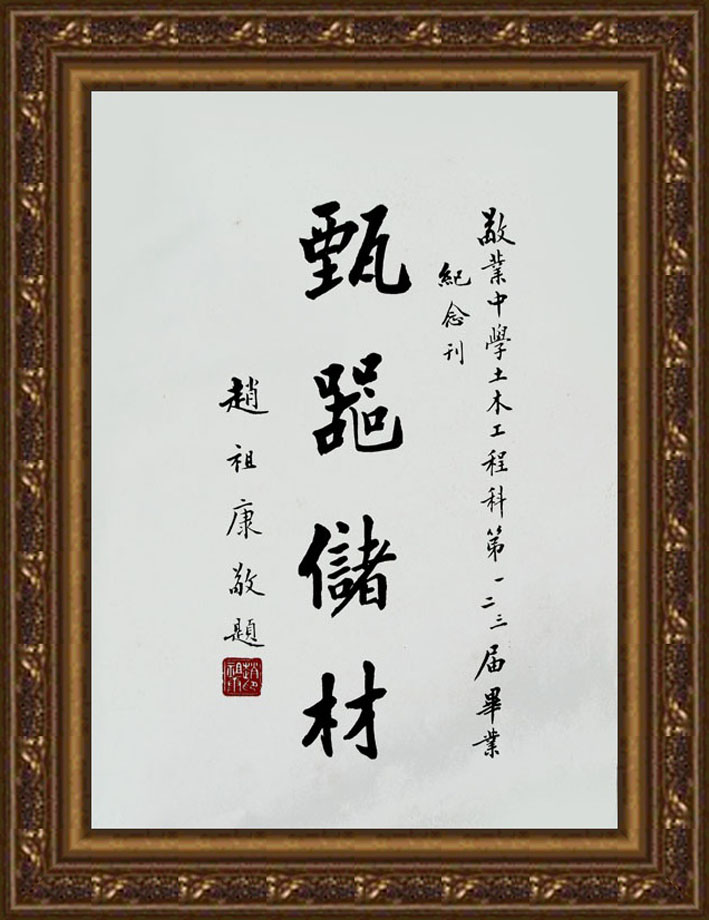 敬業中學土木工程科第一二三屆畢業
紀念刊
甄噐儲材
趙祖康敬題